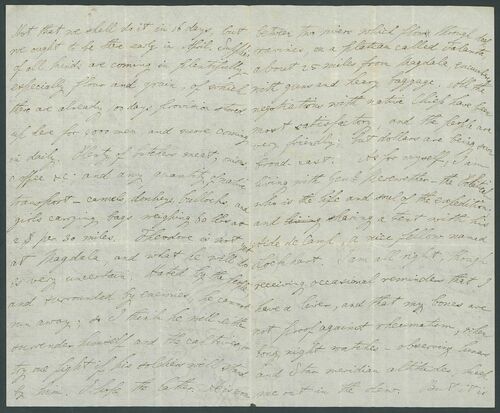 Not that we shall do it in 15 days, but
we ought to be there early in April. Supplies
of all kinds are coming in plentifully
especially flour and grain, of which
there are already 10 days provision stored
up here for 5000 men, and more coming
in daily. Plenty of butchers meat,
coffee &c. and any quantity of native
transport - camels donkeys, bullocks, and
girls carrying bags weighing 50 lbs at
2 $ per 30 miles. Theodore is not yet
at Magdala, and what he will do
is very uncertain. Hated by the people
and surrounded by enemies, he cannot
run away; & I think he will either
surrender himself and the captives or
try one fight if his soldiers will stand
by him. I hope the latter. He is now
between two rivers which flow through deep
ravines, on a plateau called Talanta
about 25 miles from Magdala encumbered
with guns and heavy baggage. All the
negotiations with native Chiefs have been
most satisfactory and the people are
very friendly: but dollars are being sown
broad cast. As for myself, I am
living with Genl. Merewether - the Political
who is the life and soul of the expedition
and sharing a tent with his
aide de camp, a nice fellow named
Lockhart. I am all right, though
receiving occasional reminders that I
have a liver, and that my bones are
not proof against rheumatism, when
long night watches - observing lunars
and Star meridian altitudes, need
me out in the dew. But it is